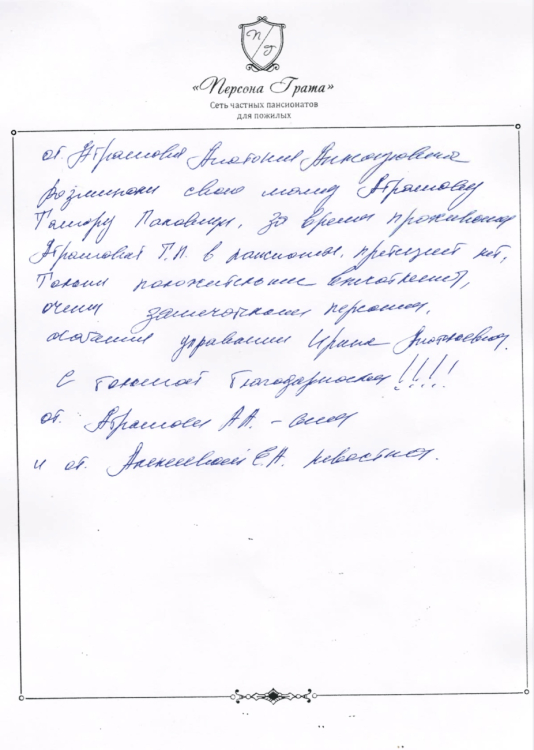 П/Г
«Персона Грата»
Сеть частных пансионатов
для пожилых
от Абрамова Анатолия
свою маму Абрамову
Тамару Павловну, за время проживания
Абрамовой Т.П. в пансионате, претензий нет,
Только положительные впечатления,
очень замечательный персонал,
управляющая Ирина Анатольевна.
С большой благодарностью!!!!
от. Абрамова А.А. – сына
и от. Алексеевой С.А. невестка.